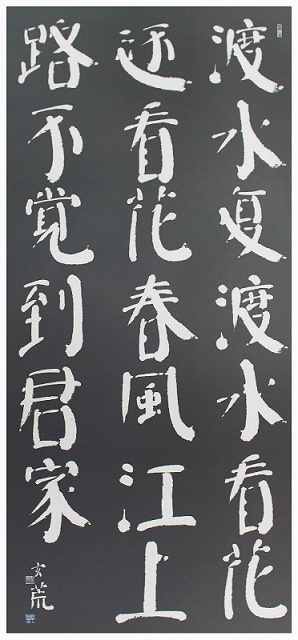 渡水复渡水看花
还看花春風江上
路不覚到君家
玄荒